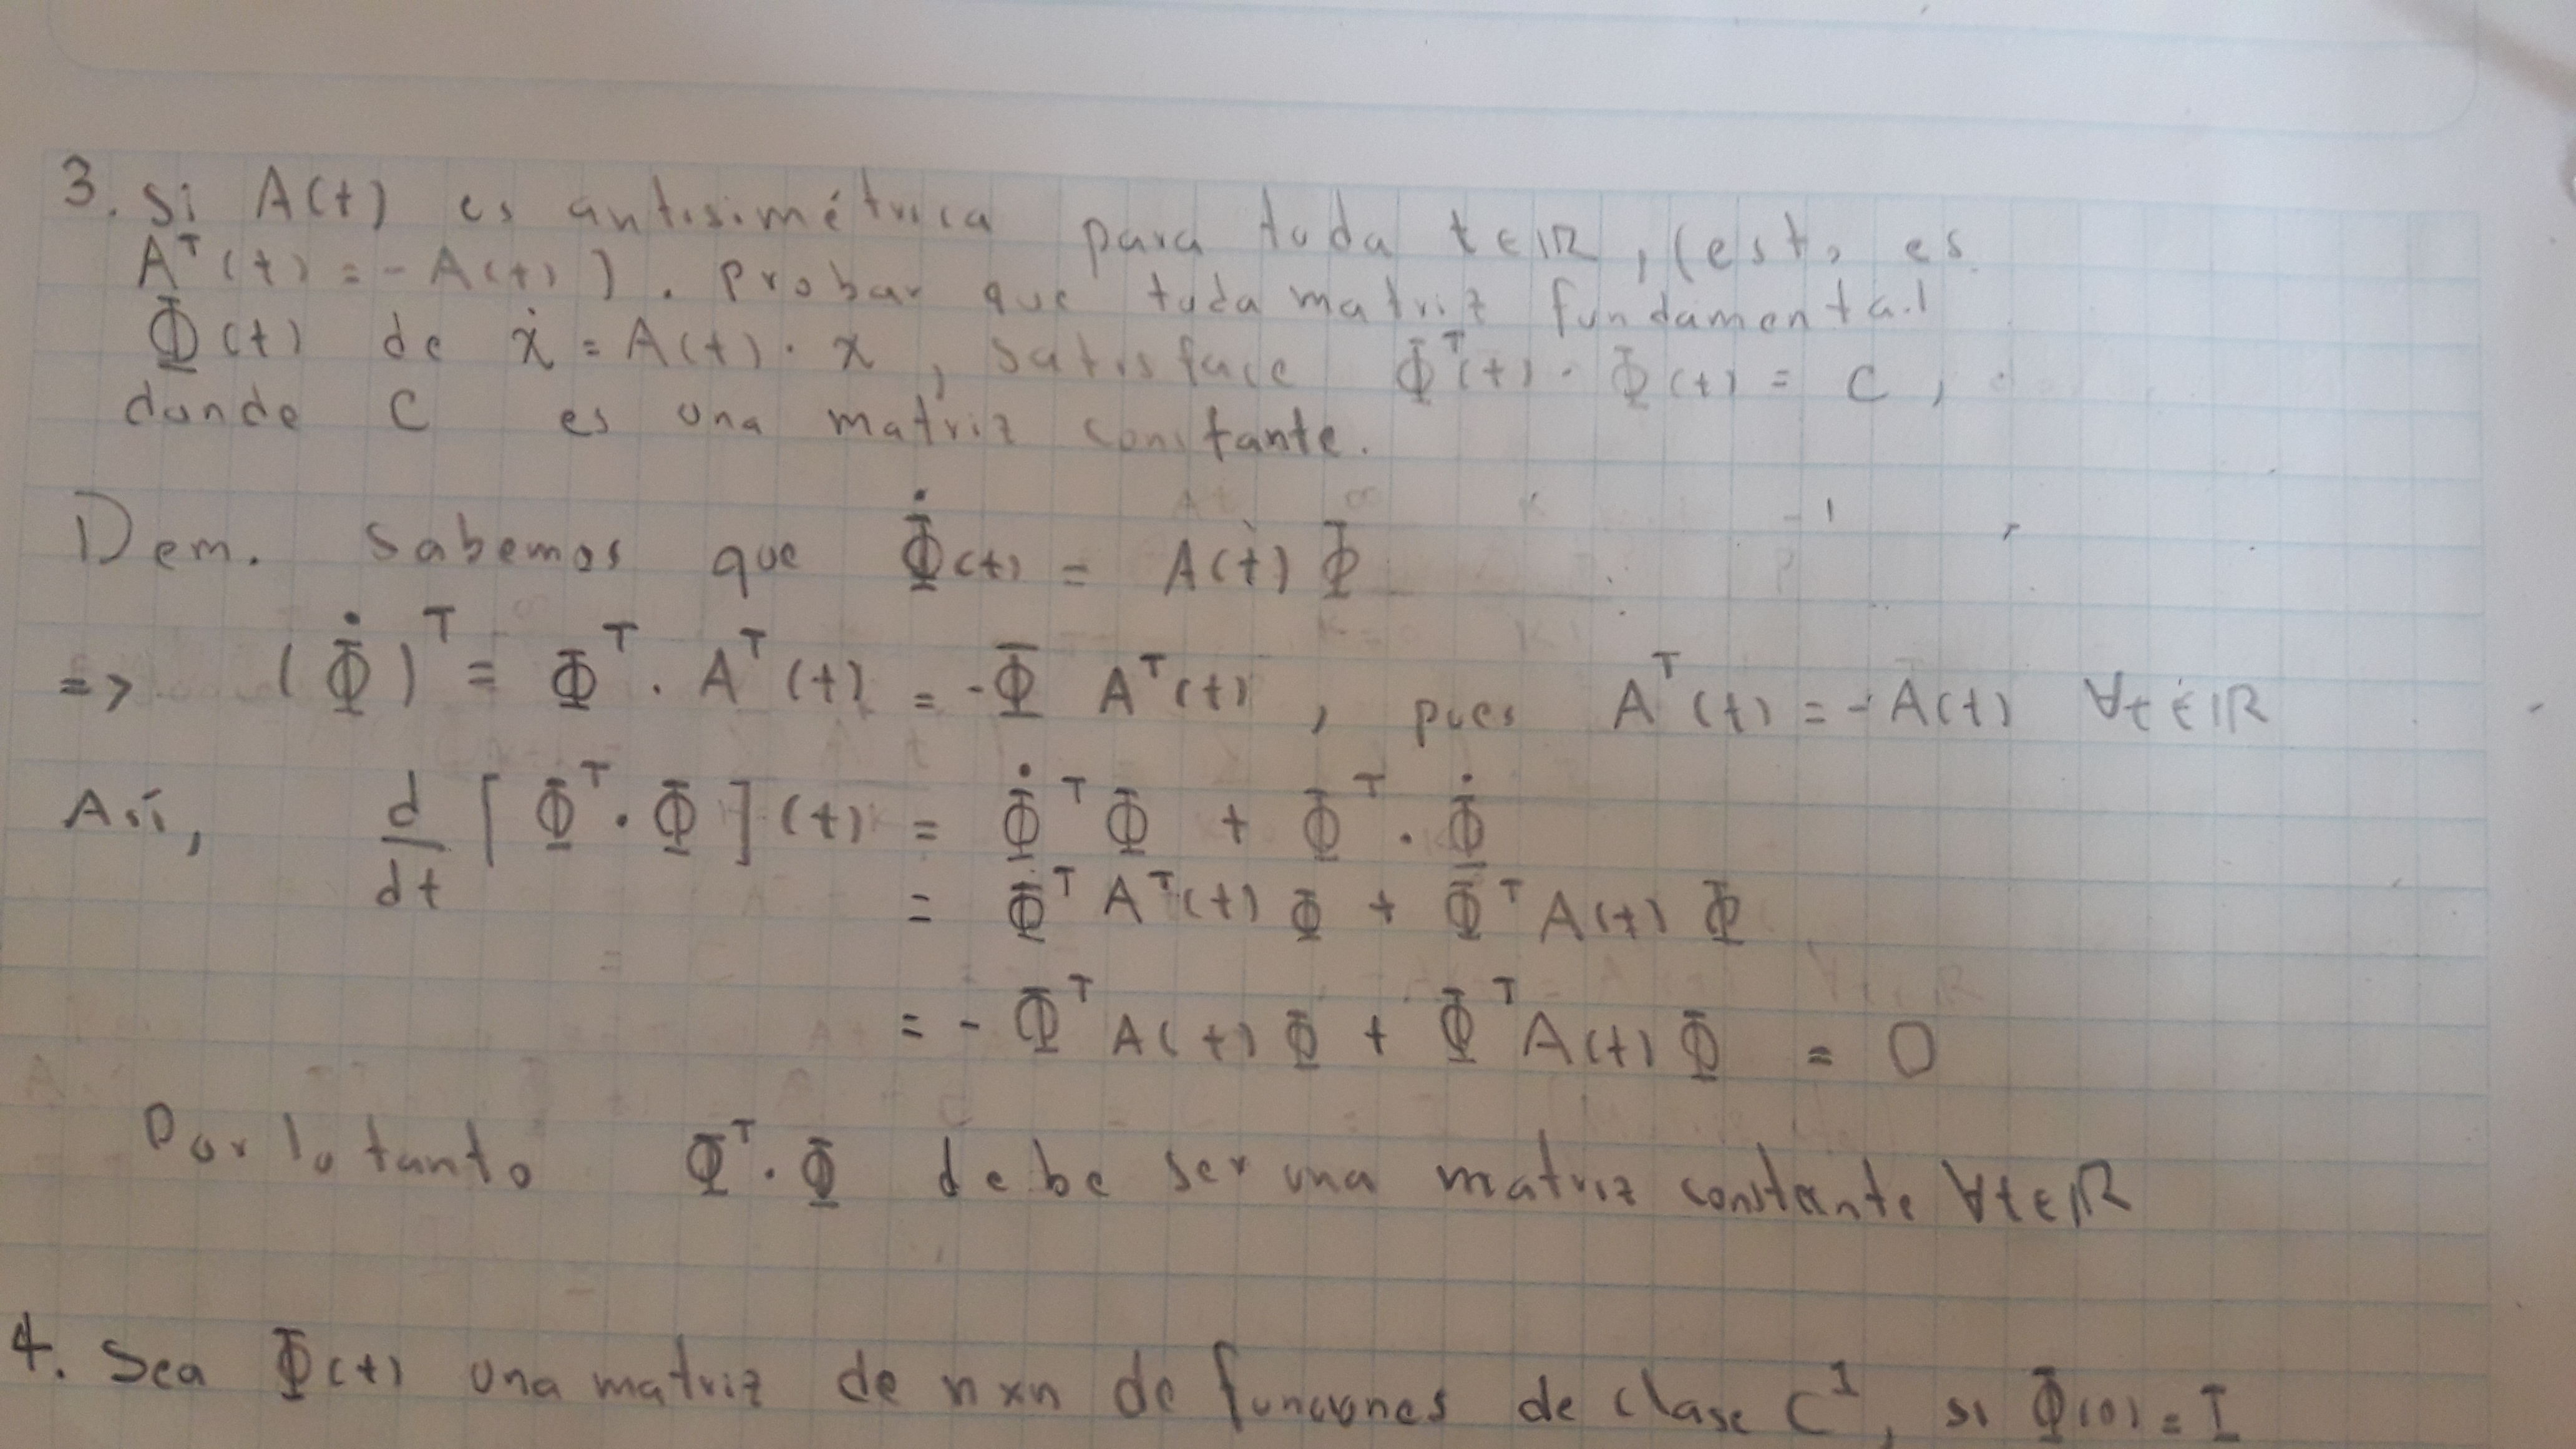 3. Si A(t) es antisimétrica para toda t∈ℝ, (esto es
Aᵀ(t) = -A(t)). Probar que toda matriz fundamental
Φ(t) de ẋ = A(t)·x, satisface Φᵀ(t)·Φ(t) = C,
donde C es una matriz constante.
Dem. Sabemos que Φ̇(t) = A(t)Φ
=> (Φ̇)ᵀ = Φᵀ·Aᵀ(t) = -Φ Aᵀ(t), pues Aᵀ(t) = -A(t) ∀t∈ℝ
Así, d/dt [Φᵀ·Φ](t) = Φ̇ᵀΦ + Φᵀ·Φ̇
= ΦᵀAᵀ(t)Φ + ΦᵀA(t)Φ
= -ΦᵀA(t)Φ + ΦᵀA(t)Φ = 0
Por lo tanto Φᵀ·Φ debe ser una matriz constante ∀t∈ℝ
4. Sea Φ(t) una matriz de n×n de funciones de clase C¹, si Φ(0) = I